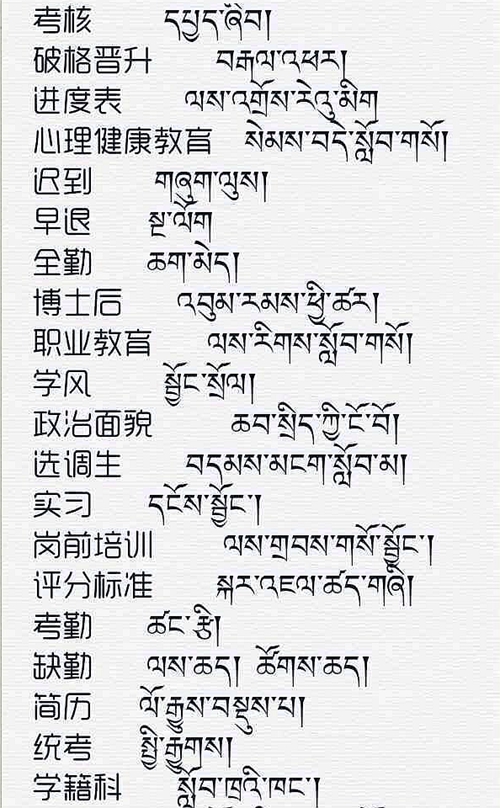 考核 དཔྱད་ཞིབ།
破格晋升 བརྒལ་འཕར།
进度表 ལས་འགྲོས་རེའུ་མིག
心理健康教育 སེམས་བདེ་སློབ་གསོ།
迟到 གཞུག་ལུས།
早退 སྔ་ལོག
全勤 ཆག་མེད།
博士后 འབུམ་རམས་ཕྱི་ཚར།
职业教育 ལས་རིགས་སློབ་གསོ།
学风 སྦྱོང་སྲོལ།
政治面貌 ཆབ་སྲིད་ཀྱི་ངོ་བོ།
选调生 བདམས་མངག་སློབ་མ།
实习 དངོས་སྦྱོང་།
岗前培训 ལས་གྲབས་གསོ་སྦྱོང་།
评分标准 སྐར་འཇལ་ཚད་གཞི།
考勤 ཚང་རྩི།
缺勤 ལས་ཆད། ཚོགས་ཆད།
简历 ལོ་རྒྱུས་བསྡུས་པ།
统考 སྤྱི་རྒྱུགས།
学籍科 སློབ་ཁྲའི་ཁང་།